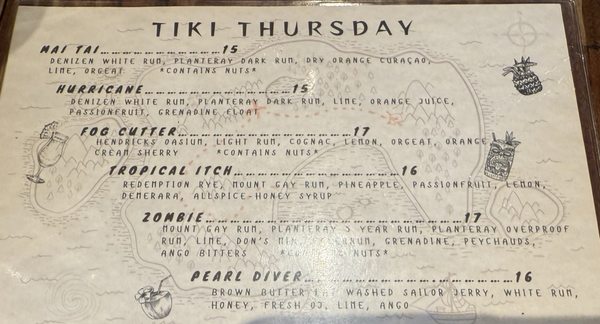 TIKI THURSDAY
MAI TAI........................15
DENIZEN WHITE RUM, PLANTERAY DARK RUM, DRY ORANGE CURAÇAO,
LIME, ORGEAT *CONTAINS NUTS*
HURRICANE........................15
DENIZEN WHITE RUM, PLANTERAY DARK RUM, LIME, ORANGE JUICE,
PASSIONFRUIT, GRENADINE FLOAT
FOG CUTTER........................17
HENDRICKS OASIUM, LIGHT RUM, COGNAC, LEMON, ORGEAT, ORANGE
CREAM SHERRY *CONTAINS NUTS*
TROPICAL ITCH........................16
REDEMPTION RYE, MOUNT GAY RUM, PINEAPPLE, PASSIONFRUIT, LEMON,
DEMERARA, ALLSPICE-HONEY SYRUP
ZOMBIE........................17
MOUNT GAY RUM, PLANTERAY 5 YEAR RUM, PLANTERAY OVERPROOF
RUM, LIME, DON'S MIX, FALERNUM, GRENADINE, PEYCHAUDS,
ANGO BITTERS *CONTAINS NUTS*
PEARL DIVER........................16
BROWN BUTTER FAT WASHED SAILOR JERRY, WHITE RUM,
HONEY, FRESH OJ, LIME, ANGO